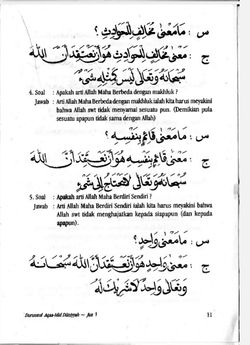 س : مَامَعْنَى مُخَالِفٌ لِلْحَوَادِثِ ؟
ج : مَعْنَى مُخَالِفٌ لِلْحَوَادِثِ هُوَ أَنْ نَعْتَقِدَ أَنَّ اللهَ
سُبْحَانَهُ وَتَعَالَى لَيْسَ كَمِثْلِهِ شَيْءٌ
4. Soal : Apakah arti Allah Maha Berbeda dengan makhluk ?
Jawab : Arti Allah Maha Berbeda dengan makhluk ialah kita harus meyakini
bahwa Allah swt tidak menyamai sesuatu pun. (Demikian pula
sesuatu apapun tidak sama dengan Allah)
س : مَامَعْنَى قَائِمٌ بِنَفْسِهِ ؟
ج : مَعْنَى قَائِمٌ بِنَفْسِهِ هُوَ أَنْ نَعْتَقِدَ أَنَّ اللهَ
سُبْحَانَهُ وَتَعَالَى لَا يَحْتَاجُ إِلَى شَيْءٍ
5. Soal : Apakah arti Allah Maha Berdiri Sendiri ?
Jawab : Arti Allah Maha Berdiri Sendiri ialah kita harus meyakini bahwa
Allah swt tidak menghajatkan kepada siapapun (dan kepada
apapun).
س : مَامَعْنَى وَاحِدٌ ؟
ج : مَعْنَى وَاحِدٌ هُوَ أَنْ نَعْتَقِدَ أَنَّ اللهَ سُبْحَانَهُ
وَتَعَالَى وَاحِدٌ لَا شَرِيْكَ لَهُ
Duruusul Aqaa-idid Diiniyyah — Juz 1
11